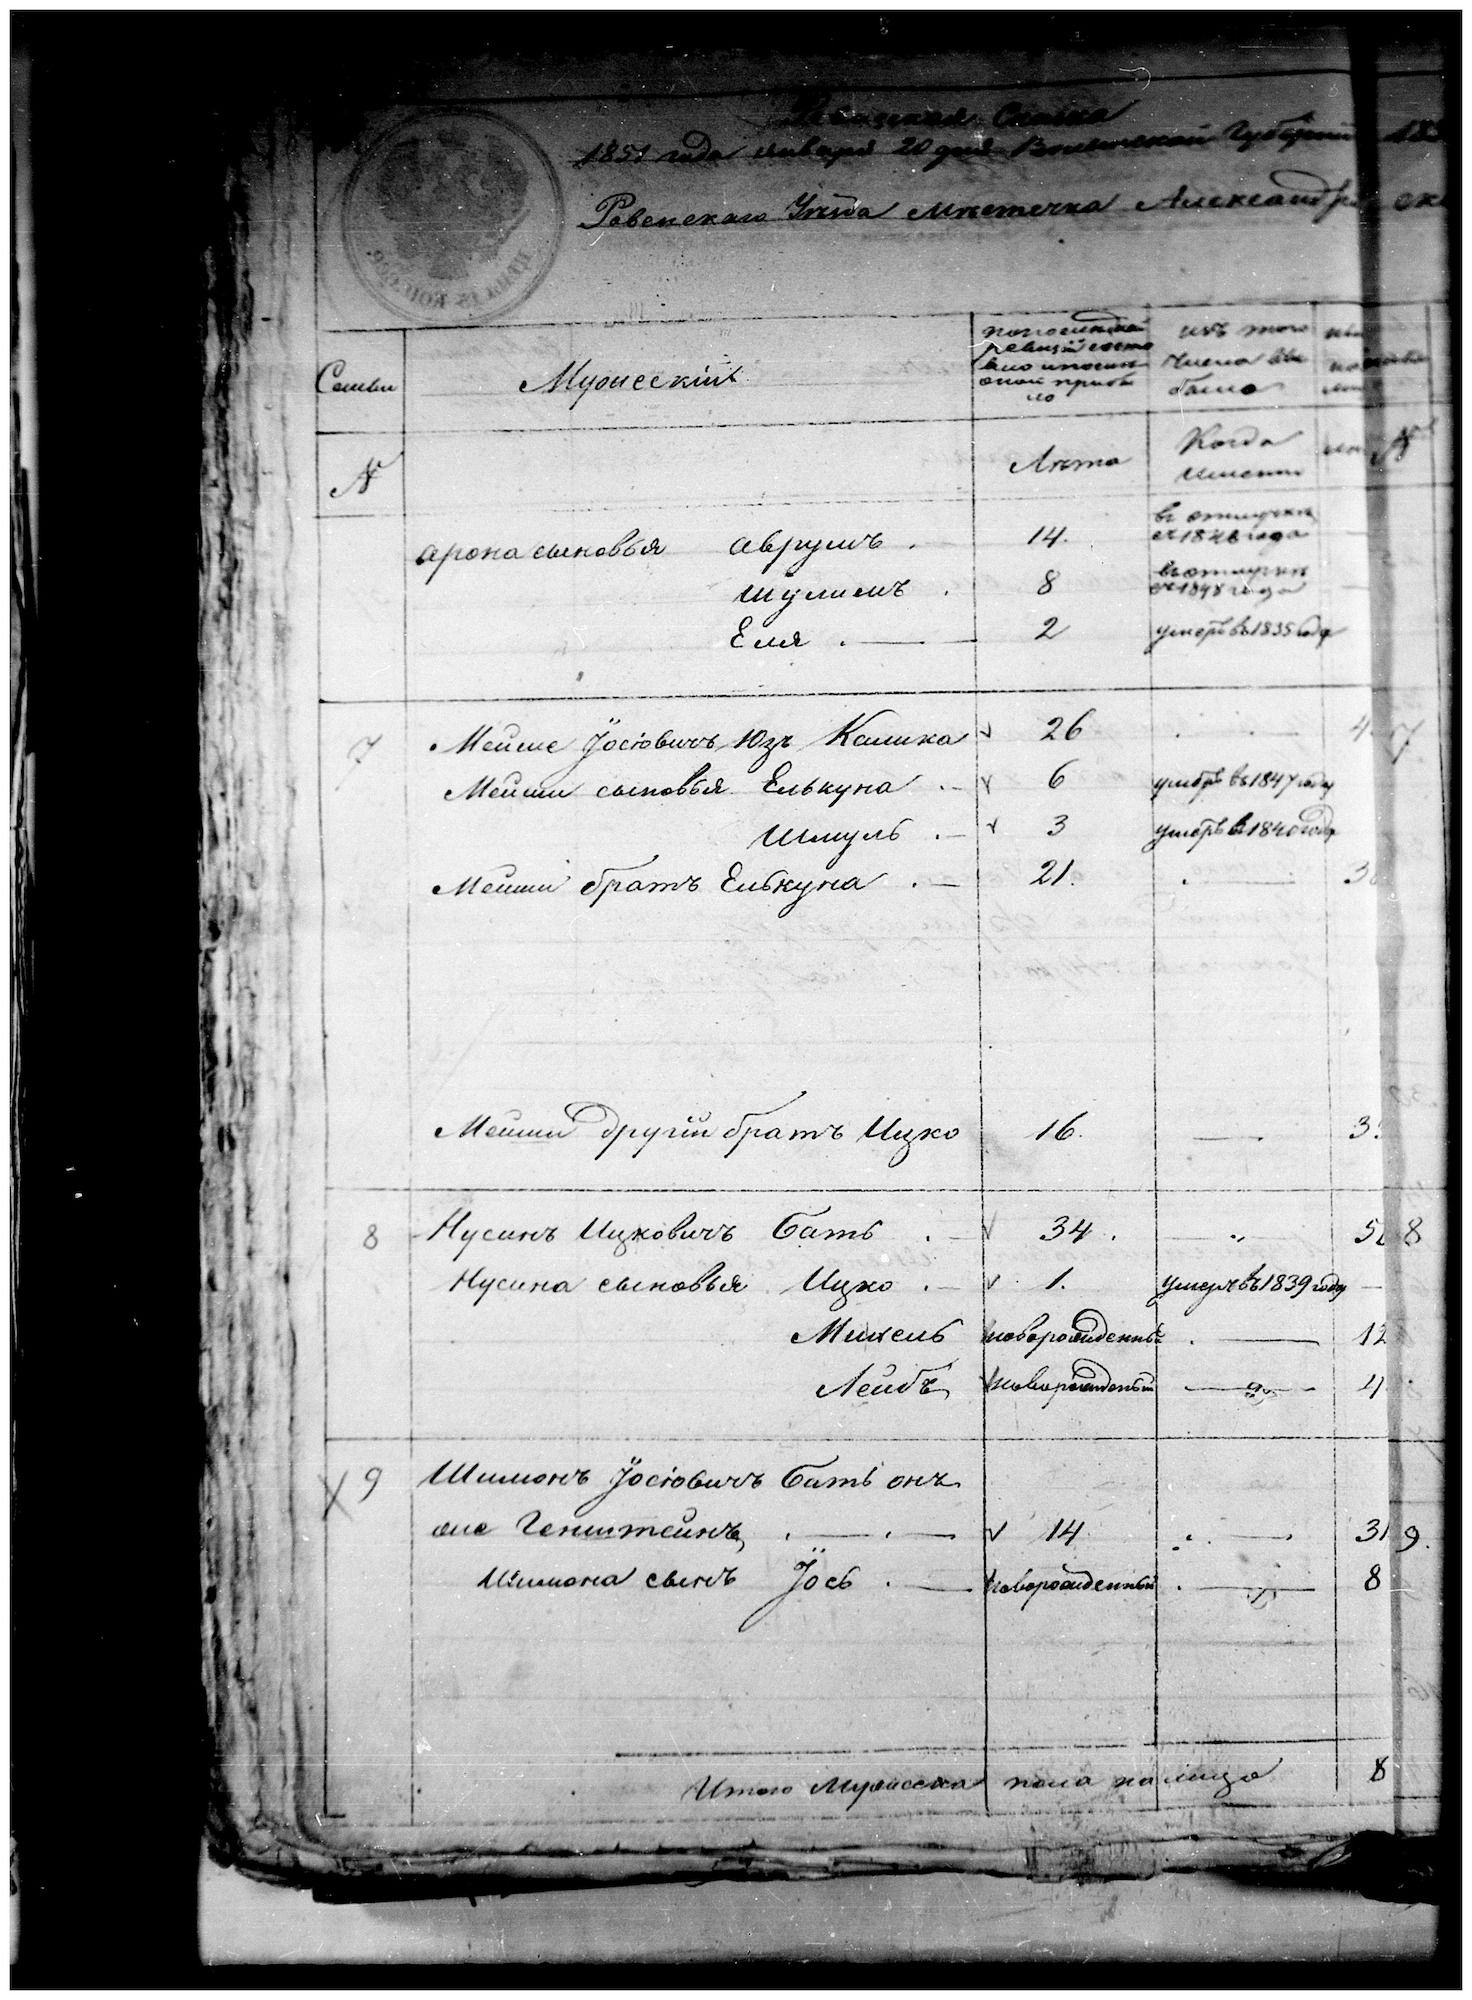 Ревизская Сказка
1851 года января 20 дня Волынской Губернии 185
Ровенскаго Уѣзда Мѣстечка Александрі ск
Семьи
Мужескій
по последней ревизіи состояло и после оной прибыло
изъ того числа выбыло
№
Лѣта
Когда именно
№
Арона сыновья Аврумъ . 14. в отлучке съ 1846 года
Шулимъ . 8 в отлучке съ 1848 года
Еля . — 2 умеръ въ 1835 году
7 Мейше Іосіовичъ Юзъ Калика 26 4 7
Мейши сыновья Елькуна . — 6 умеръ въ 1847 году
Шмуль . — 3 умеръ въ 1840 году
Мейши братъ Елькуна . — 21. 3
Мейши другій братъ Ицко 16. — 3
8 Нусинъ Ицковичъ Бать . — 34. — „ 5 8
Нусина сыновья Ицко . — 1. умеръ въ 1839 году —
Михель новорожденный . — 12
Лейбъ новорожденный — „ — 4
9 Шимонъ Іосіовичъ Бать онъ
же Генштейнъ . — . — 14 . — . 31 9.
Шимона сынъ Іось . — новорожденный . — 8
Итого Мужеска пола на лицо 8